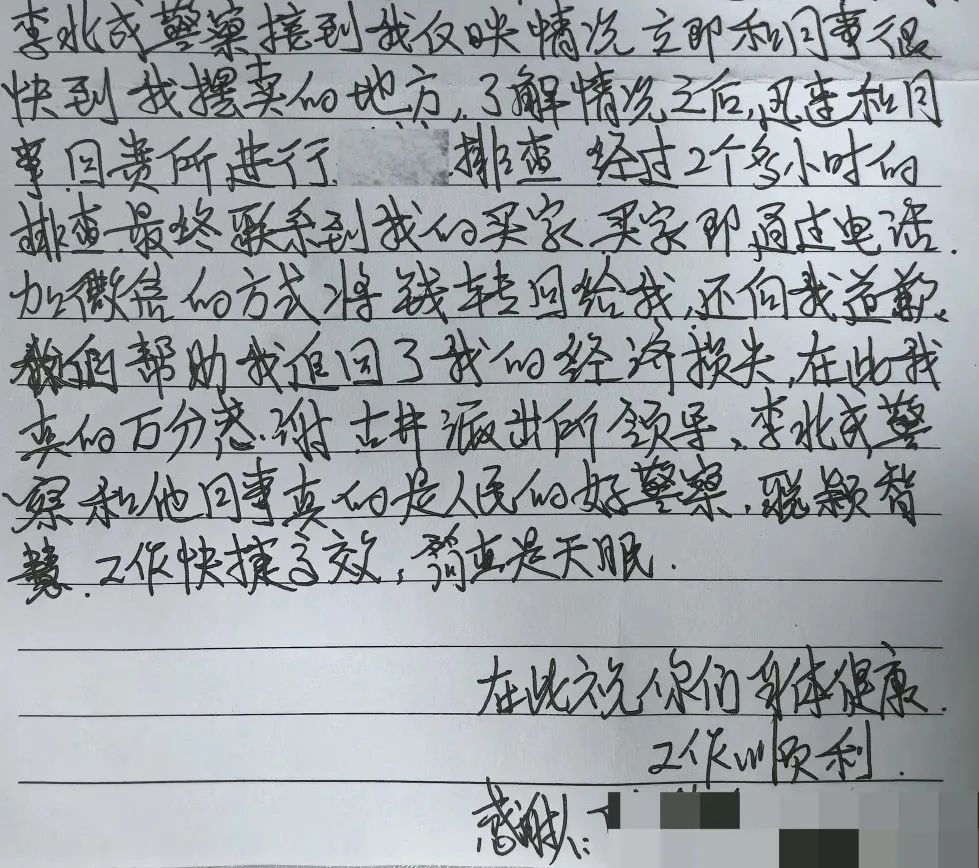 李北成警察接到我反映情况立即和同事很
快到我摆卖的地方,了解情况之后,迅速和同
事回贵所进行 排查 经过2个多小时的
排查,最终联系到我的买家,买家即通过电话
加微信的方式将钱转回给我,还向我道歉,
你们帮助我追回了我的经济损失,在此我
真的万分感谢古井派出所领导、李北成警
察和他同事真的是人民的好警察,聪颖智
慧,工作快捷高效,简直是天眼.
在此祝你们身体健康.
工作顺利.
感谢人: